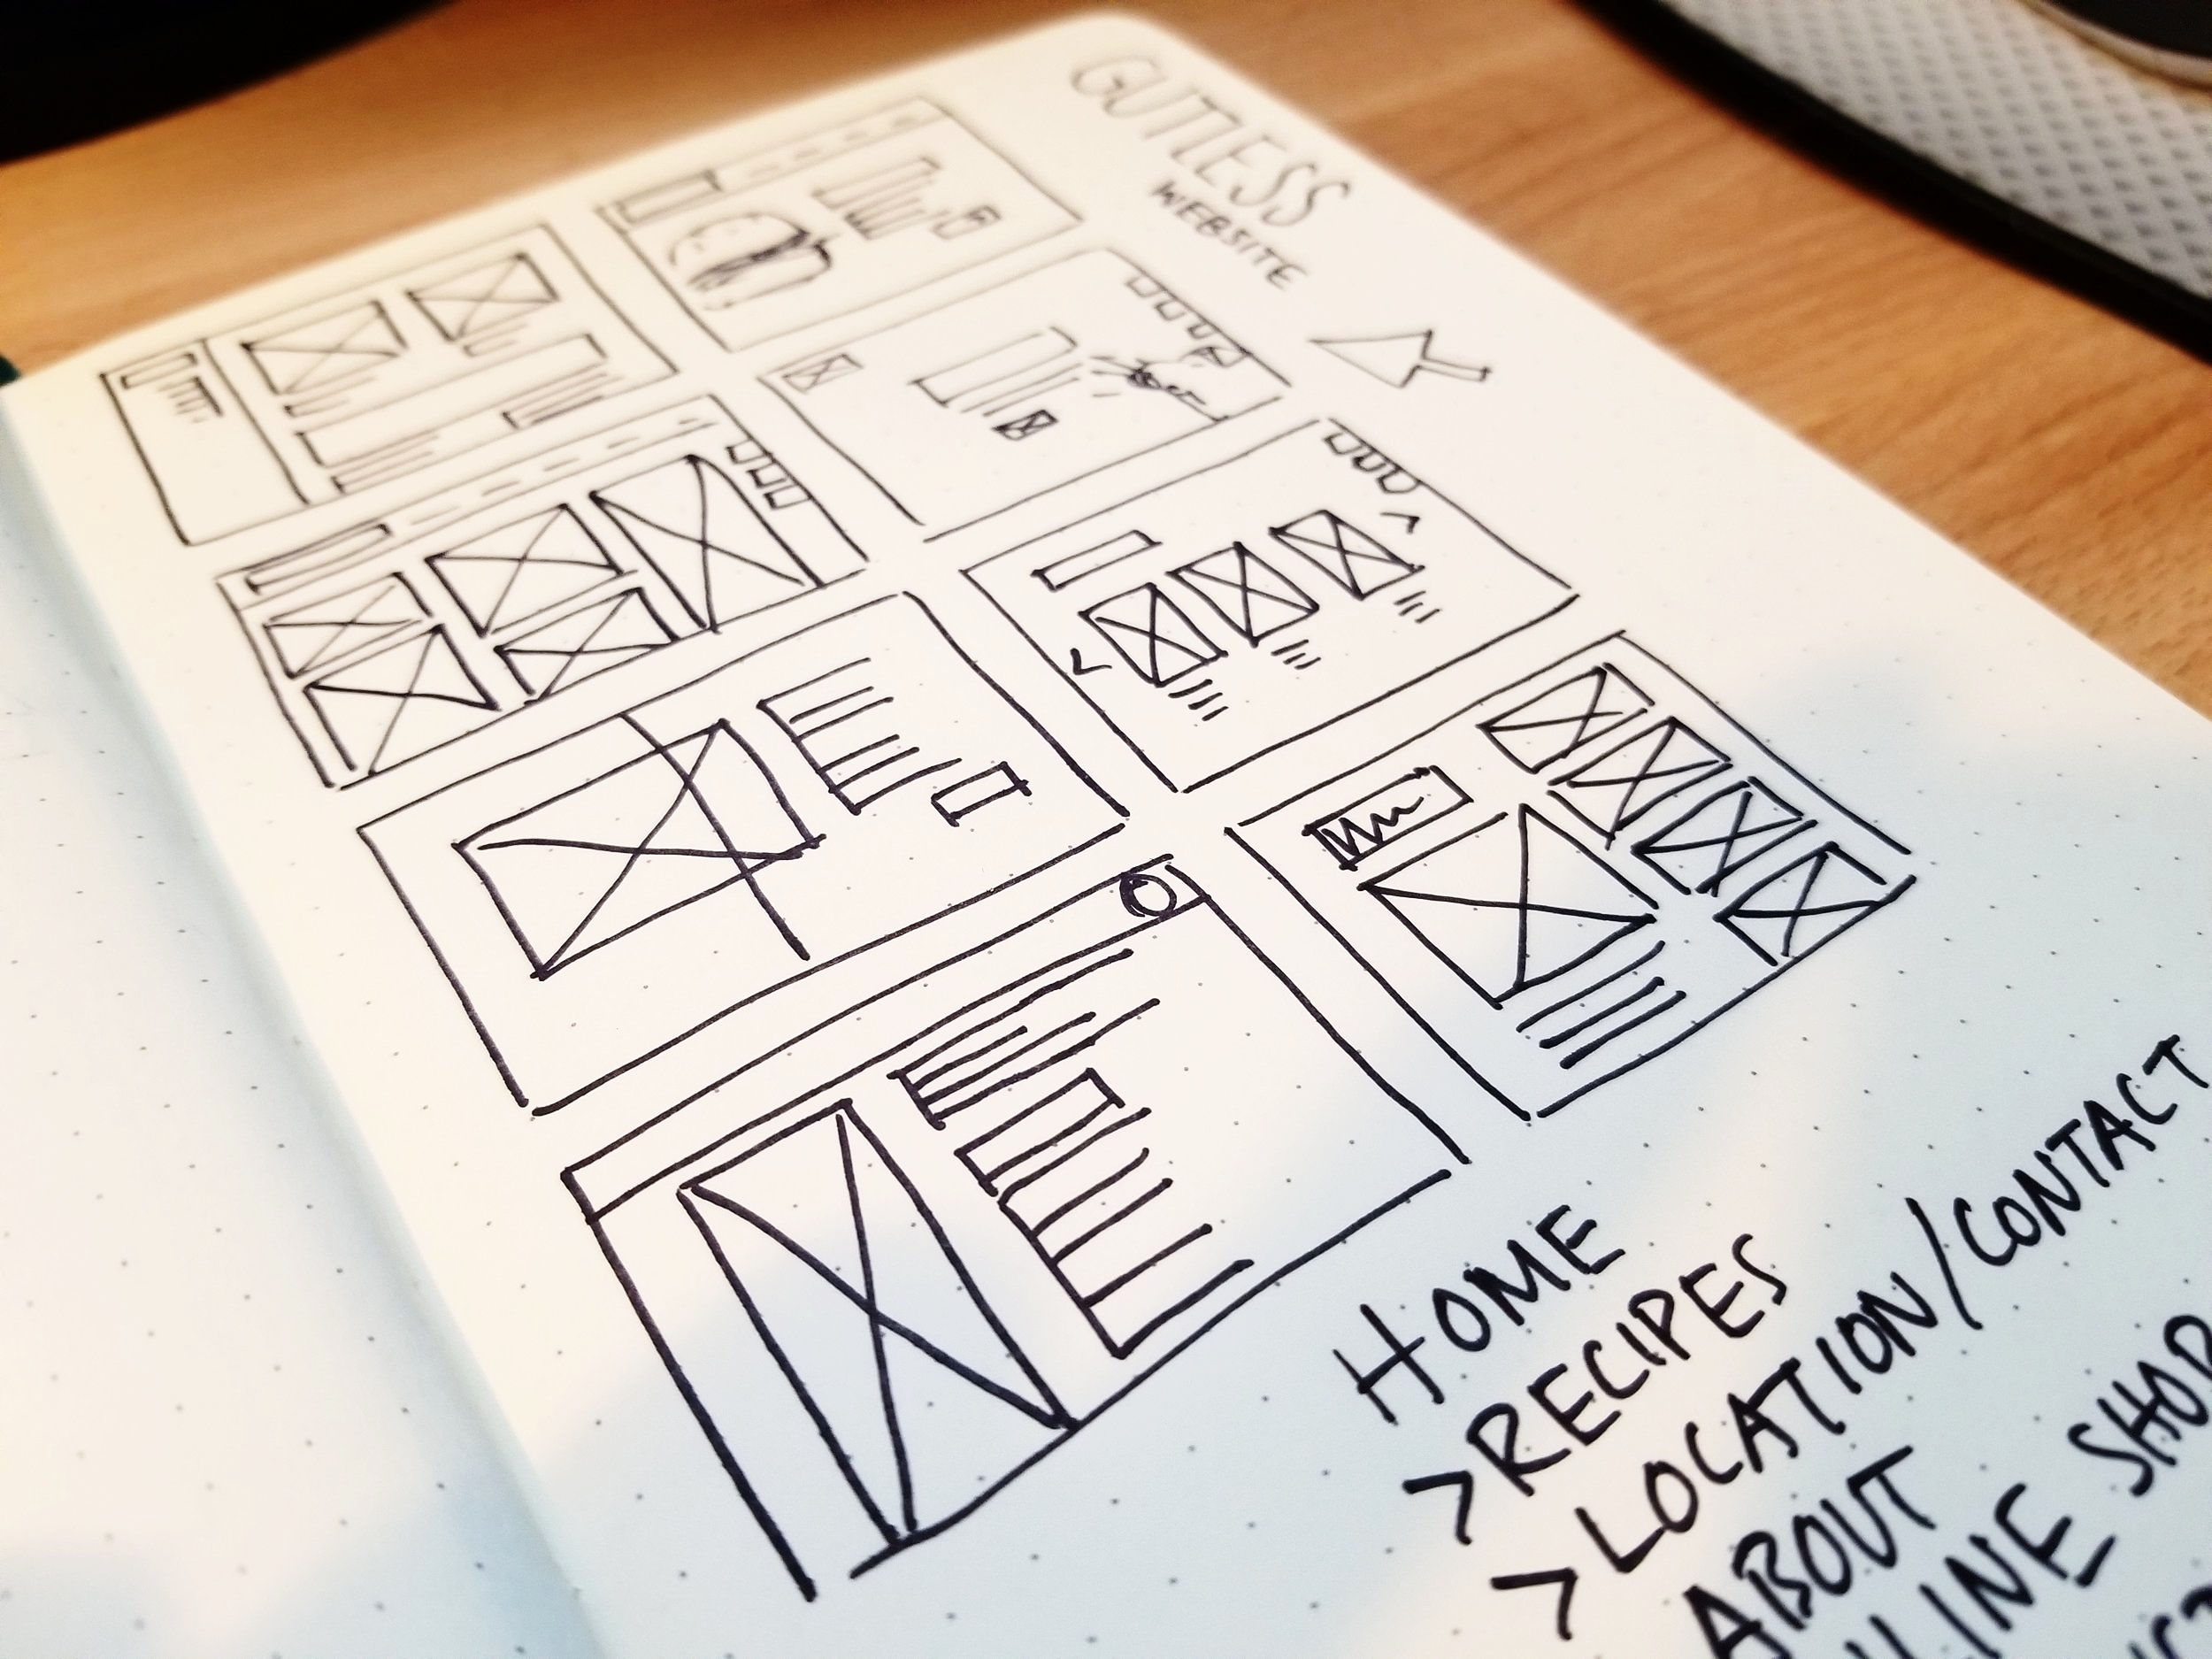 GUTLESS
WEBSITE
HOME
> RECIPES
> LOCATION/CONTACT
ABOUT
SHOP